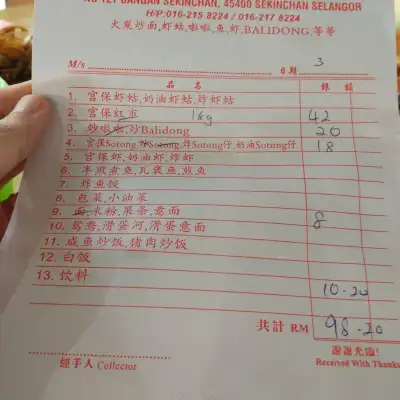 NO 127 BANGAN SEKINCHAN, 45400 SEKINCHAN SELANGOR
H/P:016-215 8224 / 016-217 8224
大炭炒面,虾蛄,啦啦,鱼,虾,BALIDONG,等等
M/s
日期 3
品 名 銀 額
1. 宫保虾蛄,奶油虾蛄,炸虾蛄
2. 宫保红 1kg 42
3. 炒啦啦,炒Balidong 20
4. 宫保Sotong,炒Sotong,炸Sotong仔,奶油Sotong仔 18
5. 宫保虾,奶油虾,炸虾
6. 半煎煮鱼,瓦煲鱼,煎鱼
7. 炸鱼饺
8. 包菜,小油菜
9. 面,米粉,果条,意面 8
10. 鸳鸯,滑蛋河,滑蛋意面
11. 咸鱼炒饭,猪肉炒饭
12. 白饭
13. 饮料 10-20
共計 RM 98-20
經手人 Collector
謝謝光臨!
Received With Thanks